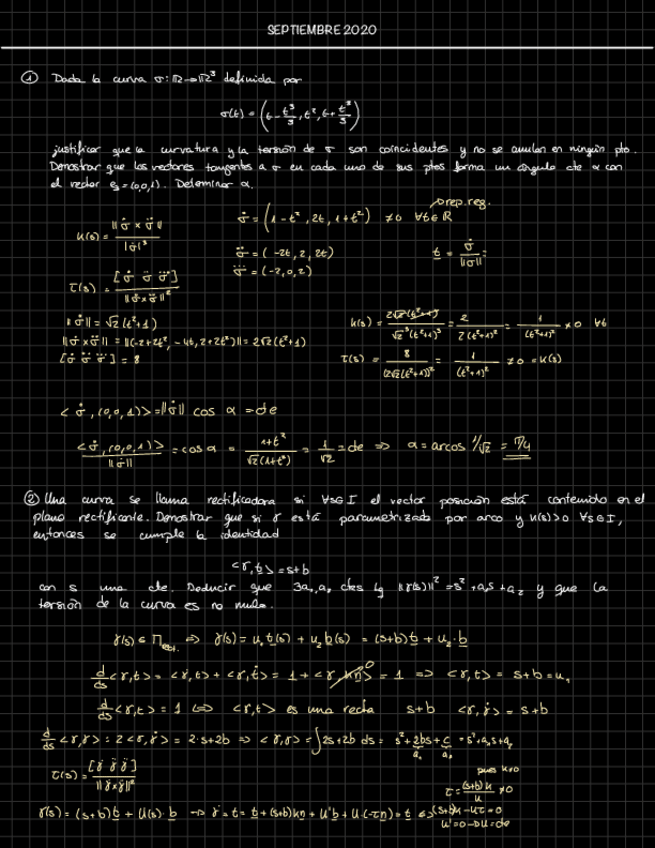 SEPTIEMBRE 2020
① Dada la curva σ: ℝ→ℝ³ definida por
σ(t) = (t - t³/3, t², t + t³/3)
justificar que la curvatura y la torsión de σ son coincidentes y no se anulan en ningún pto.
Demostrar que los vectores tangentes a σ en cada uno de sus ptos forma un ángulo cte α con
el vector e₃ = (0,0,1). Determinar α.
prep. reg.
k(s) = ||σ̇ × σ̈|| / |σ̇|³
σ̇ = (1 - t², 2t, 1 + t²) ≠ 0 ∀t∈ℝ
σ̈ = (-2t, 2, 2t)
t = σ̇ / ||σ̇|| =
σ⃛ = (-2, 0, 2)
τ(s) = [σ̇ σ̈ σ⃛] / ||σ̇ × σ̈||²
||σ̇|| = √2 (t²+1)
||σ̇ × σ̈|| = ||(-2+2t², -4t, 2+2t²)|| = 2√2 (t²+1)
[σ̇ σ̈ σ⃛] = 8
k(s) = 2√2 (t²+1) / √2³ (t²+1)³ = 2 / 2(t²+1)² = 1 / (t²+1)² ≠ 0 ∀t
τ(s) = 8 / (2√2(t²+1))² = 1 / (t²+1)² ≠ 0 = k(s)
<σ̇, (0,0,1)> = ||σ̇|| cos α = cte
<σ̇, (0,0,1)> / ||σ̇|| = cos α = 1+t² / √2(1+t²) = 1/√2 = cte ⇒ α = arcos 1/√2 = π/4
② Una curva se llama rectificadora si ∀s∈I el vector posición está contenido en el
plano rectificante. Demostrar que si γ está parametrizada por arco y k(s)>0 ∀s∈I,
entonces se cumple la identidad
<γ, t> = s+b
con s una cte. Deducir que ∃a₁, a₂ ctes tq ||γ(s)||² = s² + a₁s + a₂ y que la
torsión de la curva es no nula.
γ(s) ∈ Π ⇒ γ(s) = u₁ t(s) + u₂ b(s) = (s+b) t + u₂ · b
d/ds <γ, t> = <γ̇, t> + <γ, ṫ> = 1 + <γ, kn> 0 = 1 ⇒ <γ, t> = s+b = u₁
d/ds <γ, t> = 1 ⇔ <γ, t> es una recta s+b <γ, γ̇> = s+b
d/ds <γ, γ> = 2<γ, γ̇> = 2·s+2b ⇒ <γ, γ> = ∫2s+2b ds = s² + 2bs + c = s² + a₁s + a₂
a₁ a₂
τ(s) = [γ̇ γ̈ γ⃛] / ||γ̇ × γ̈||²
pues k≠0
τ = (s+b)k / u ≠ 0
γ(s) = (s+b) t + u(s) · b → γ̇ = t = t + (s+b)kn + u'b + u·(-τn) = t ⇔ (s+b)k - uτ = 0
u' = 0 → u = cte